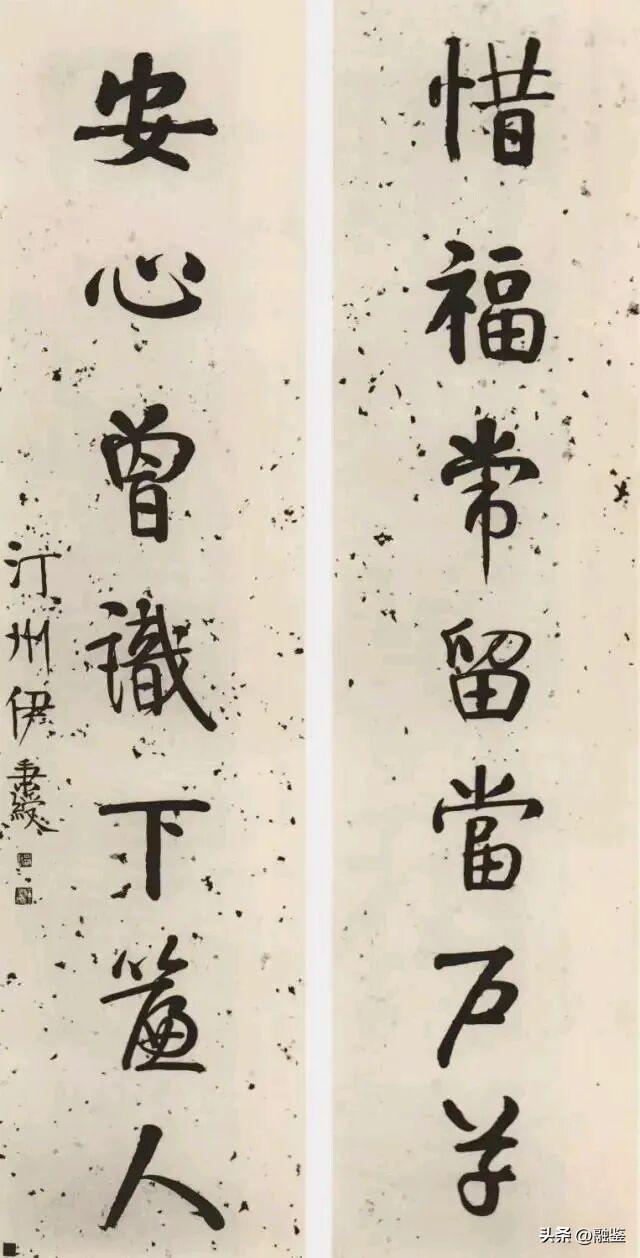 惜福常留當户草
安心曾識下簾人
汀州伊秉綬
头条 @融鉴